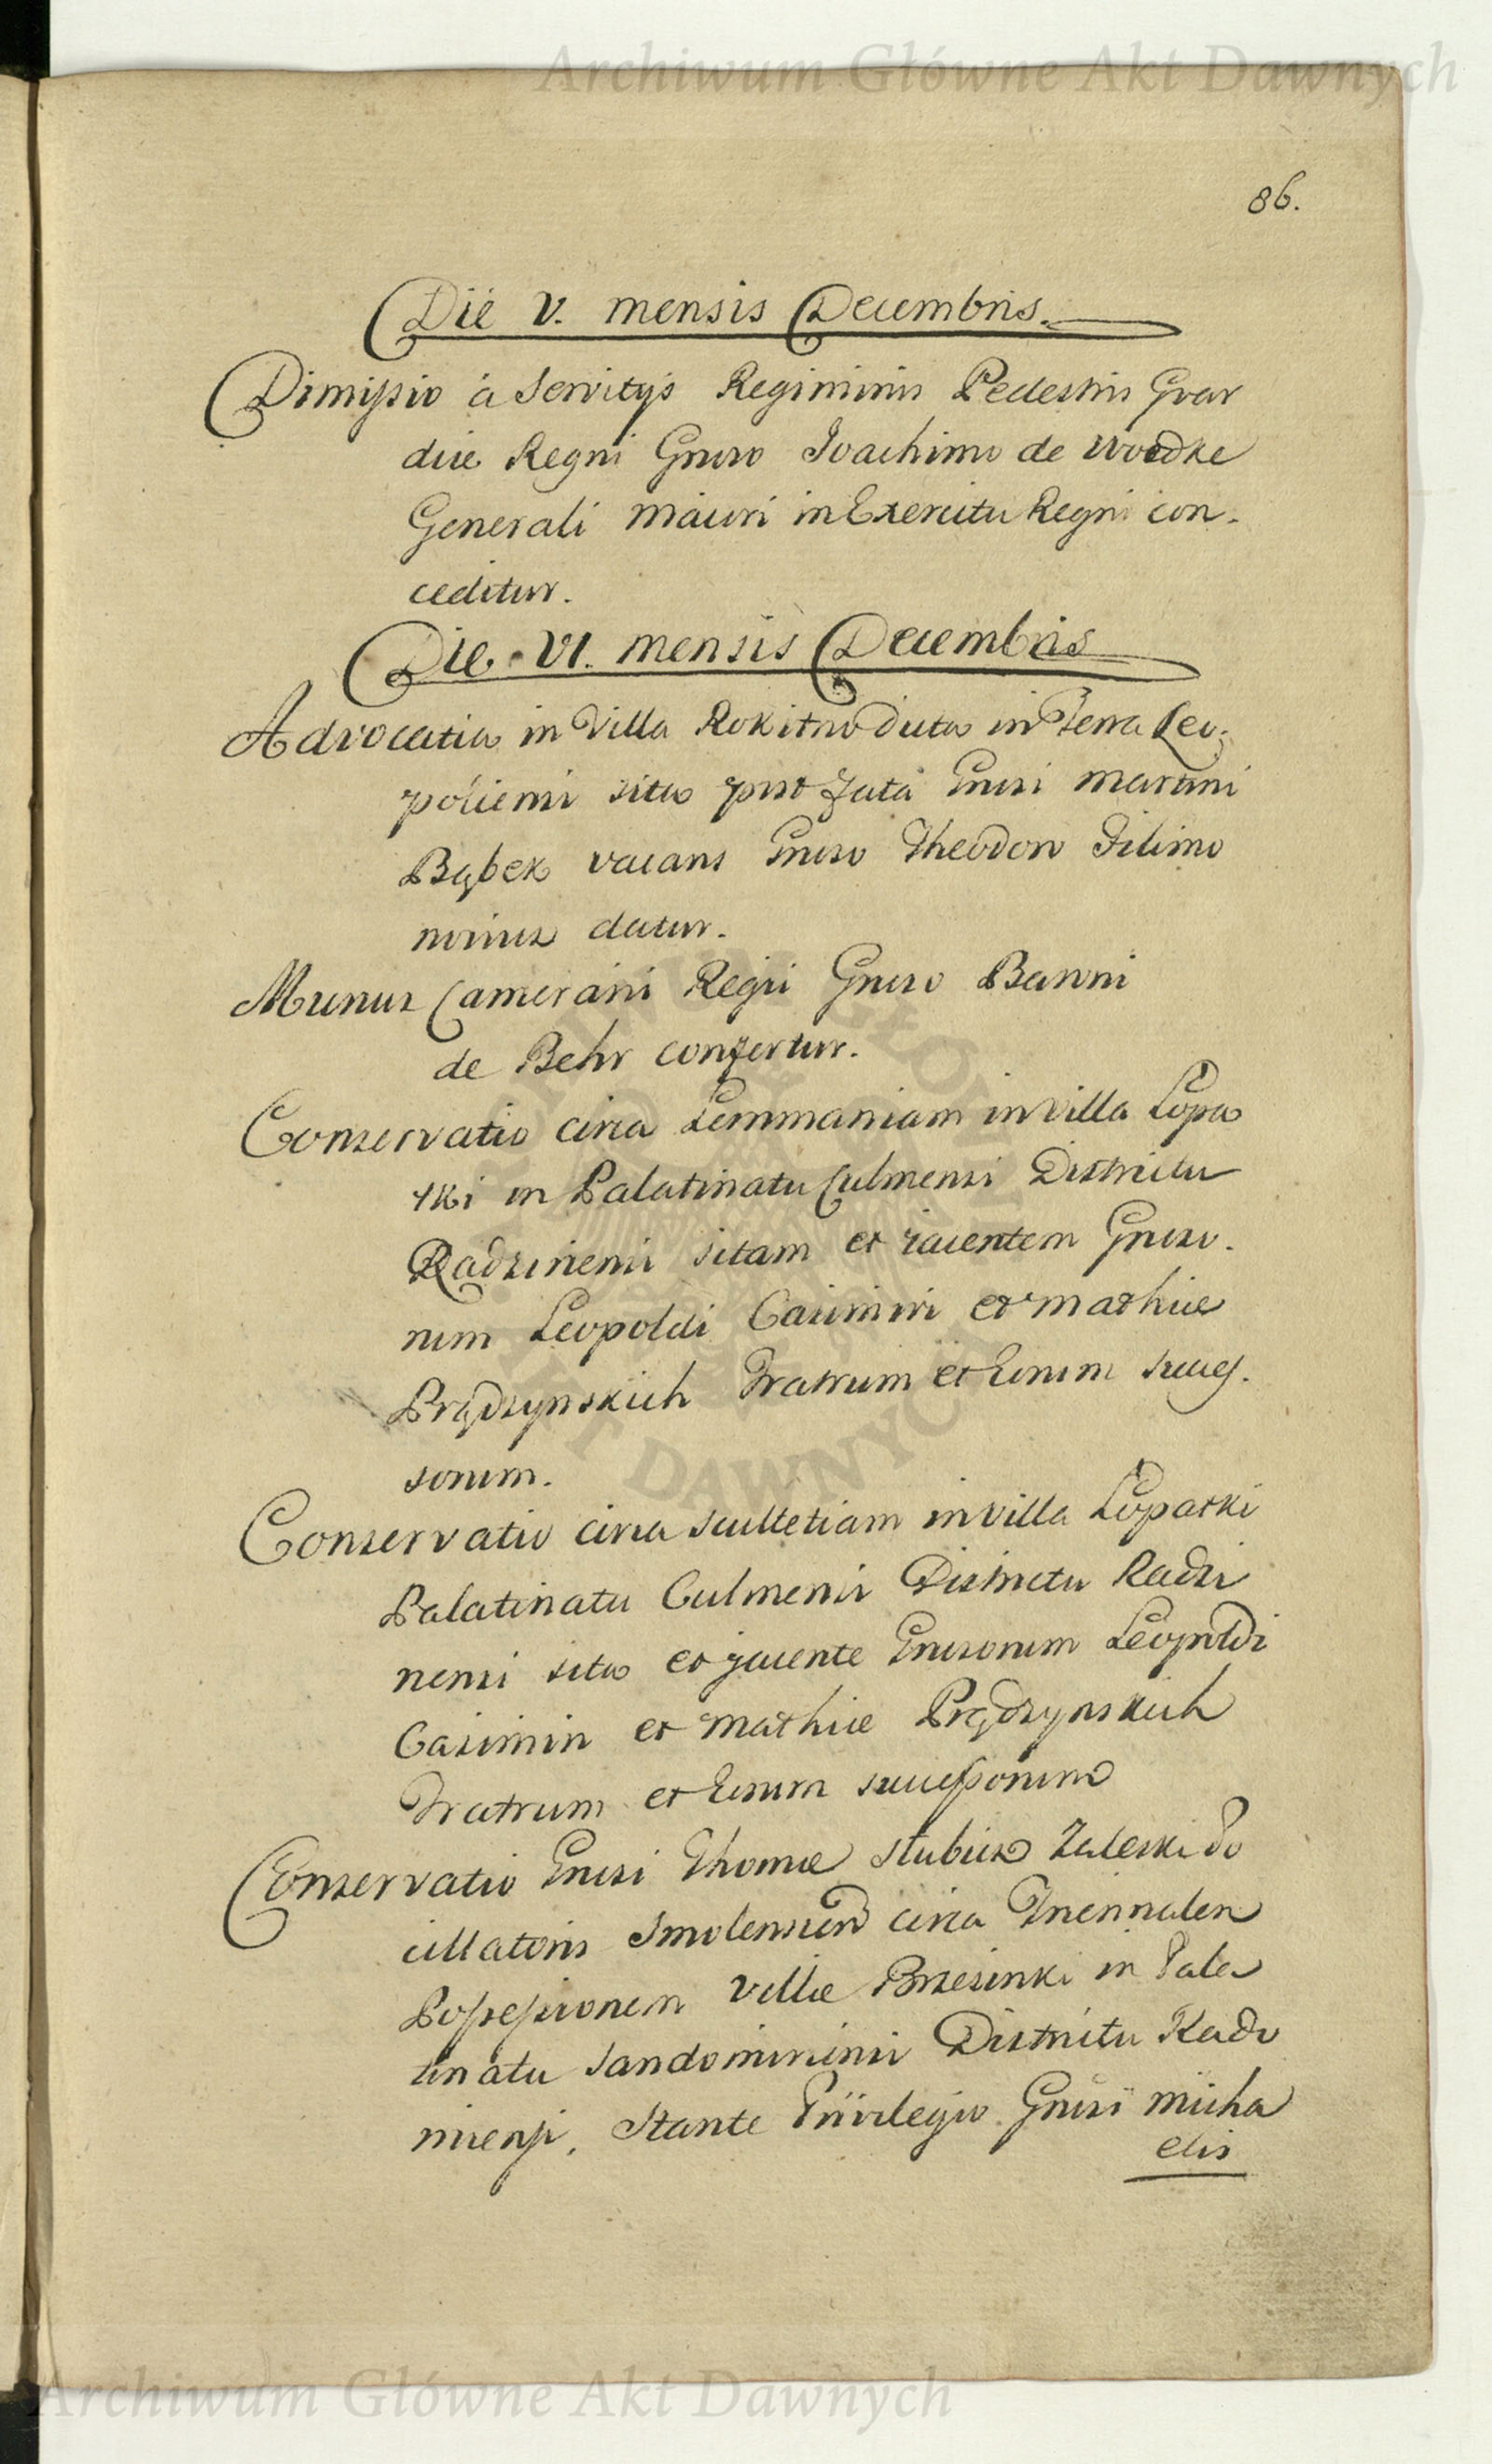 Archiwum Główne Akt Dawnych
86.
Die V. mensis Decembris.
Dimissio à Servitijs Regiminis Pedestris Gvar
diæ Regni Gnroso Joachimo de Woedke
Generali Maiori in Exercitu Regni con.
ceditur.
Die VI. mensis Decembris
Advocatia in Villa Rokitno dicta in Terra Leo.
poliensi sita post fata Gnrosi Martini
Bąbek vacans Gnroso Theodoro
datur.
Munus Camerarii Regii Gnroso Baroni
de Behr confertur.
Conservatio circa Lemmaniam in Villa Łopa
tki in Palatinatu Culmensi Districtu
Radzinensi sitam et iacentem Gnroso.
rum Leopoldi Casimiri et Mathiæ
Prądzynskich Fratrum et Eorum succes.
sorum.
Conservatio circa Scultetiam in Villa Łopatki
Palatinatu Culmensi Districtu Radzi
nensi sita et jacente Gnrosorum Leopoldi
Casimiri et Mathiæ Prądzynskich
Fratrum et Eorum successorum
Conservatio Gnrosi Thomæ Zaleski Po
cillatoris Smolenscen circa Triennalem
Possessionem Villæ Brzezinki in Pala
tinatu Sandomiriensi Districtu Rado
miensi, Stante Privilegio Gnrosi Micha
elis
ARCHIWUM GŁÓWNE AKT DAWNYCH
Archiwum Główne Akt Dawnych